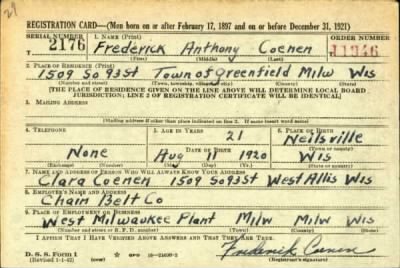 REGISTRATION CARD—(Men born on or after February 17, 1897 and on or before December 31, 1921)
SERIAL NUMBER 1. NAME (Print) ORDER NUMBER
2176 Frederick Anthony Coenen 11346
(First) (Middle) (Last)
2. PLACE OF RESIDENCE (Print)
1509 So 93 St Town of Greenfield Milw Wis
(Number and street) (Town, township, village, or city) (County) (State)
[THE PLACE OF RESIDENCE GIVEN ON THE LINE ABOVE WILL DETERMINE LOCAL BOARD
JURISDICTION; LINE 2 OF REGISTRATION CERTIFICATE WILL BE IDENTICAL]
3. MAILING ADDRESS
[Mailing address if other than place indicated on line 2. If same insert word same]
4. TELEPHONE 5. AGE IN YEARS 6. PLACE OF BIRTH
21 Neillsville
DATE OF BIRTH (Town or county)
None Aug 11 1920 Wis
(Exchange) (Number) (Mo.) (Day) (Yr.) (State or country)
7. NAME AND ADDRESS OF PERSON WHO WILL ALWAYS KNOW YOUR ADDRESS
Clara Coenen 1509 So 93 St West Allis Wis
8. EMPLOYER'S NAME AND ADDRESS
Chain Belt Co
9. PLACE OF EMPLOYMENT OR BUSINESS
West Milwaukee Plant Milw Milw Wis
(Number and street or R. F. D. number) (Town) (County) (State)
I AFFIRM THAT I HAVE VERIFIED ABOVE ANSWERS AND THAT THEY ARE TRUE.
D. S. S. Form 1
(Revised 1-1-42) (over) GPO Frederick Coenen
(Registrant's signature)